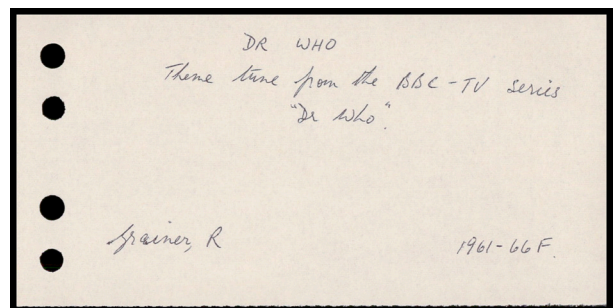 DR WHO
Theme tune from the BBC-TV series
"Dr Who".
Grainer, R
1961-66 F.